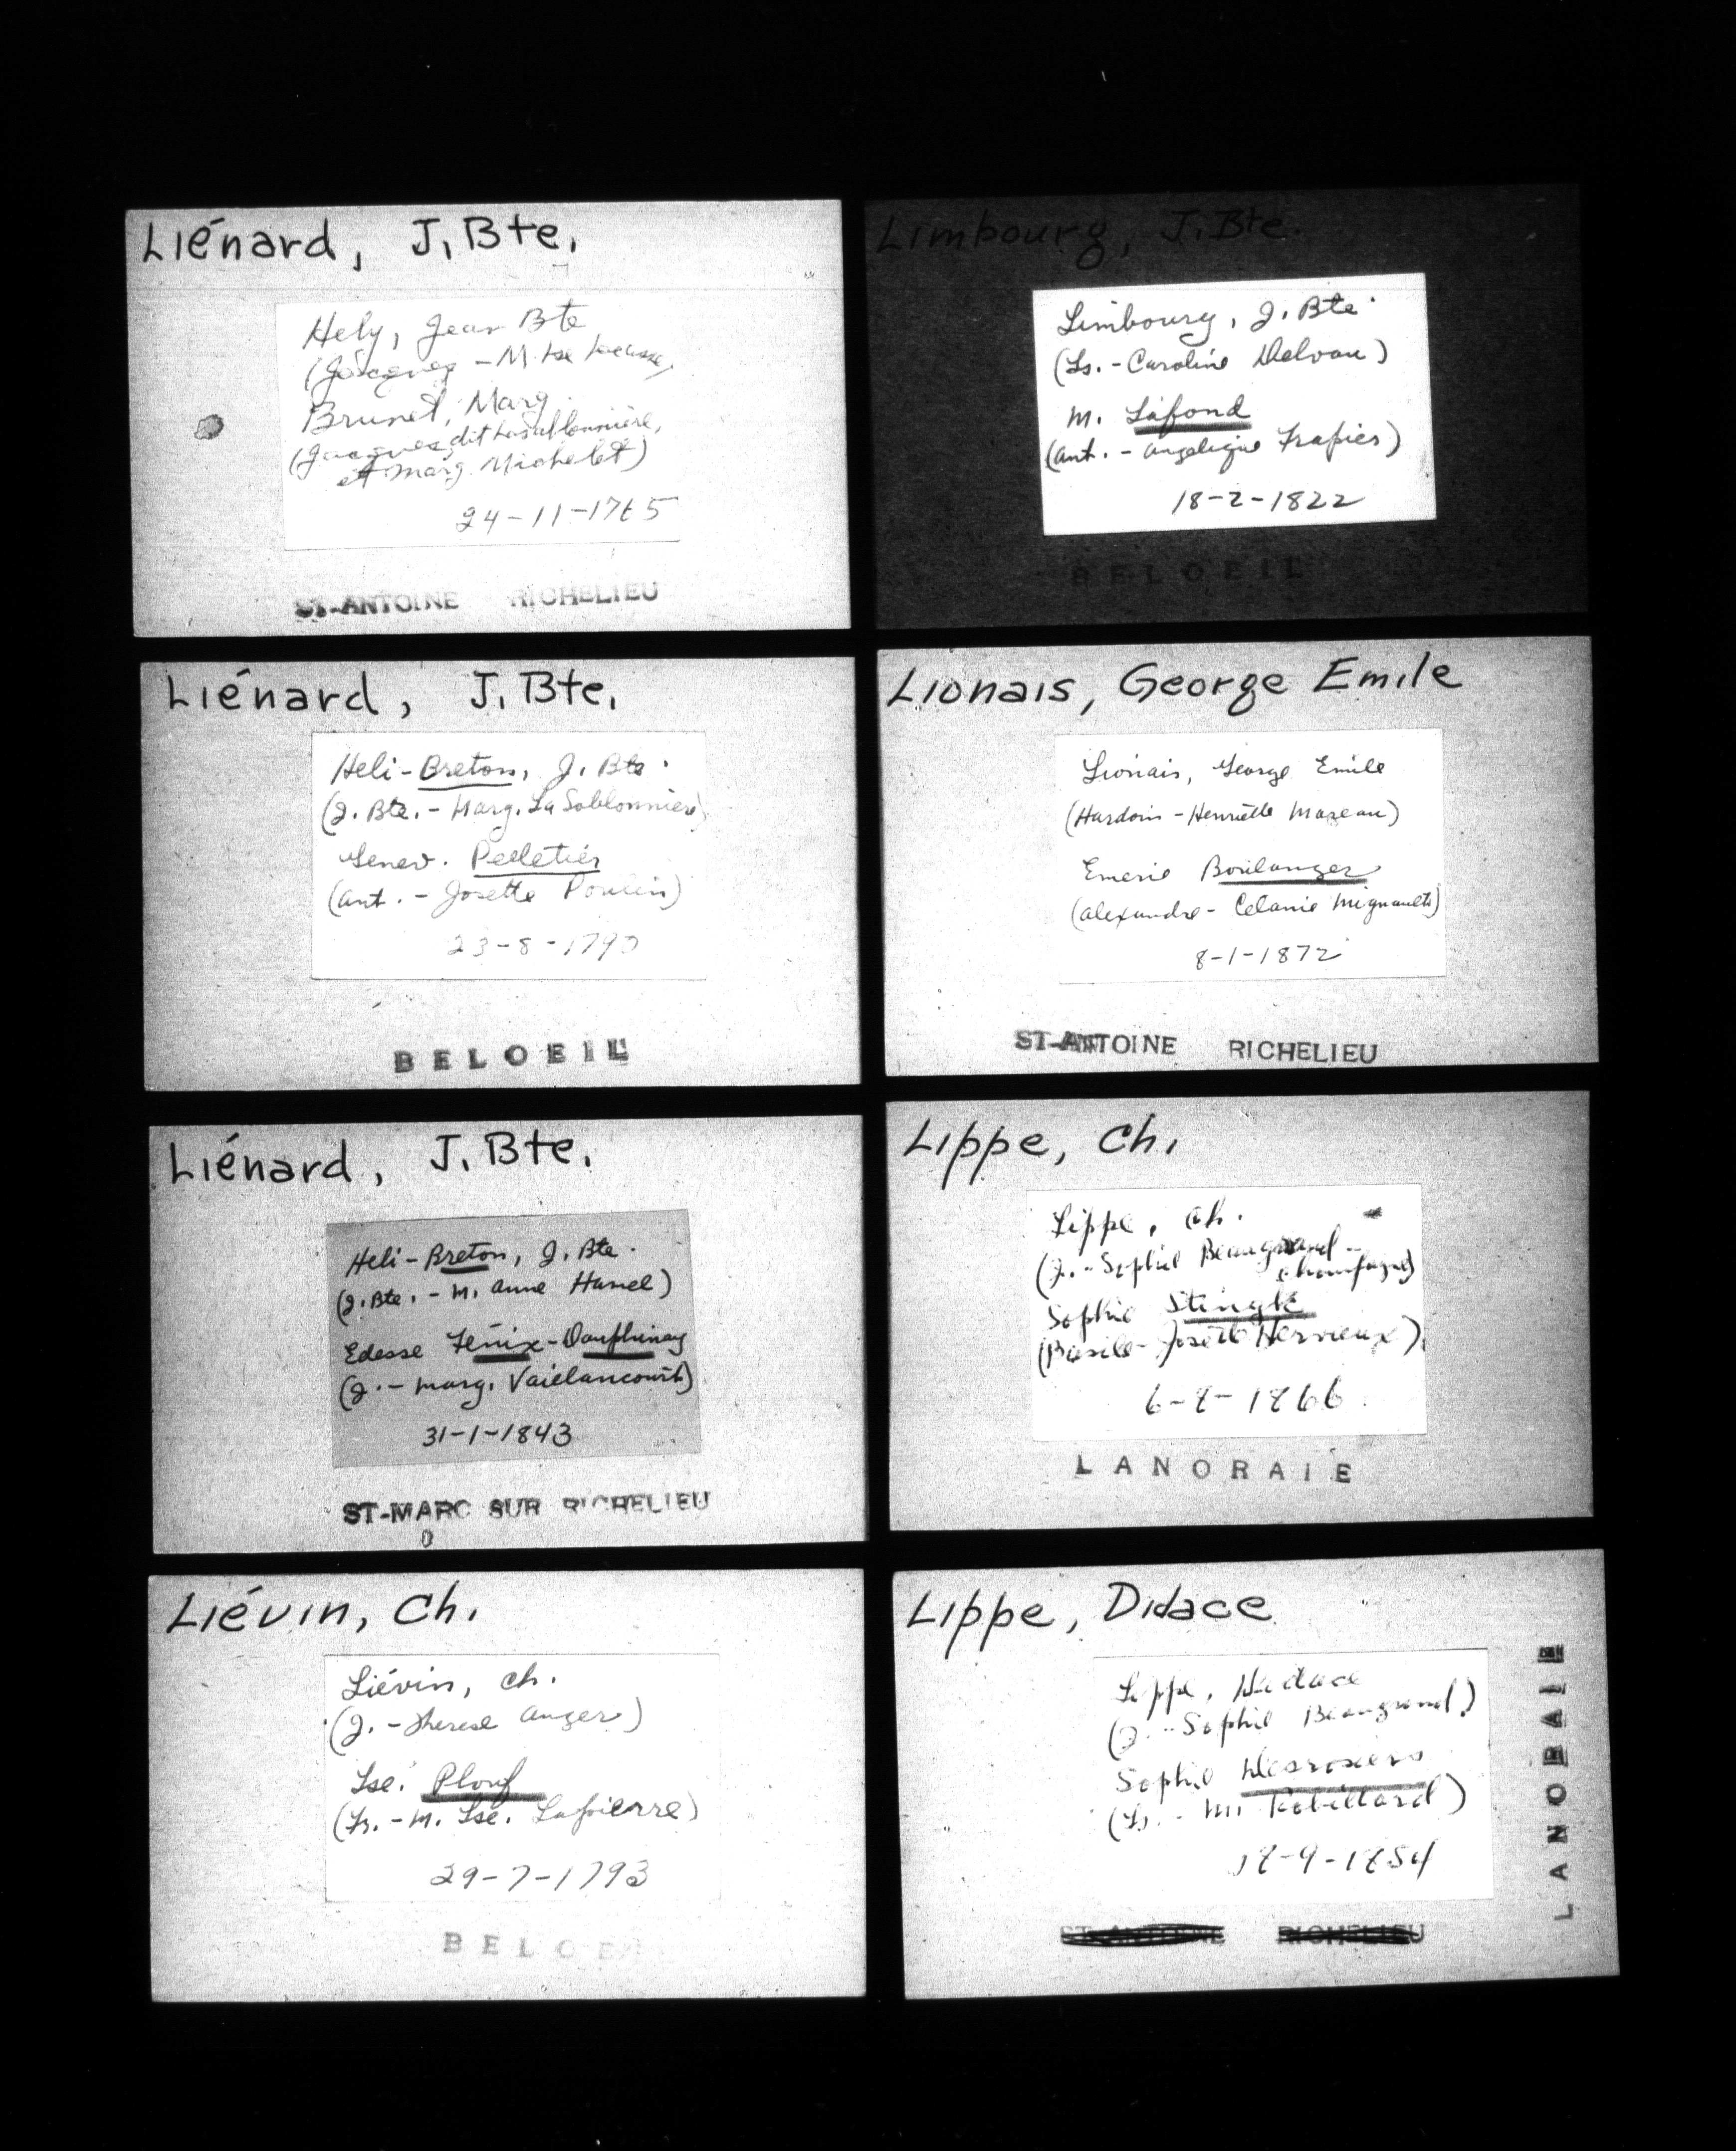 Liénard, J. Bte.
Hely, Jean Bte
(Jacques - M. Lse
Brunet, Marg.
(Jacques dit Lasablonnière,
et Marg. Michelet)
24-11-1765
ST-ANTOINE RICHELIEU
Liénard, J. Bte.
Heli-Breton, J. Bte.
(J. Bte. - Marg. La Sablonnière)
Genev. Pelletier
(Ant. - Josette Poulin)
23-8-1790
BELOEIL
Liénard, J. Bte.
Heli-Breton, J. Bte.
(J. Bte. - M. Anne Hamel)
Edesse Fénix-Dauphinay
(J. - Marg. Vaillancourt)
31-1-1843
ST-MARC SUR RICHELIEU
Liévin, Ch.
Liévin, Ch.
(J. - Therese Anger)
Lse. Plouf
(Fr. - M. Lse. Lapierre)
29-7-1793
BELOEI
Limbourg, J. Bte.
Limbourg, J. Bte.
(Ls. - Caroline Delvau)
M. Lafond
(Ant. - Angelique Frapier)
18-2-1822
BELOEIL
Lionais, George Emile
Lionais, George Emile
(Hardoin - Henriette Mazeau)
Emerie Boulanger
(Alexandre - Celanie Mignault)
8-1-1872
ST-ANTOINE RICHELIEU
Lippe, Ch.
Lippe, Ch.
(J. - Sophie Beaugrand-
Champagne)
Sophie Stingle
(Basile - Josette Hervieux)
6-8-1866
LANORAIE
Lippe, Didace
Lippe, Didace
(J. - Sophie Beaugrand)
Sophie Desrosiers
(Ls. - M. Robillard)
18-9-1854
ST-ANTOINE RICHELIEU
LANORAIE